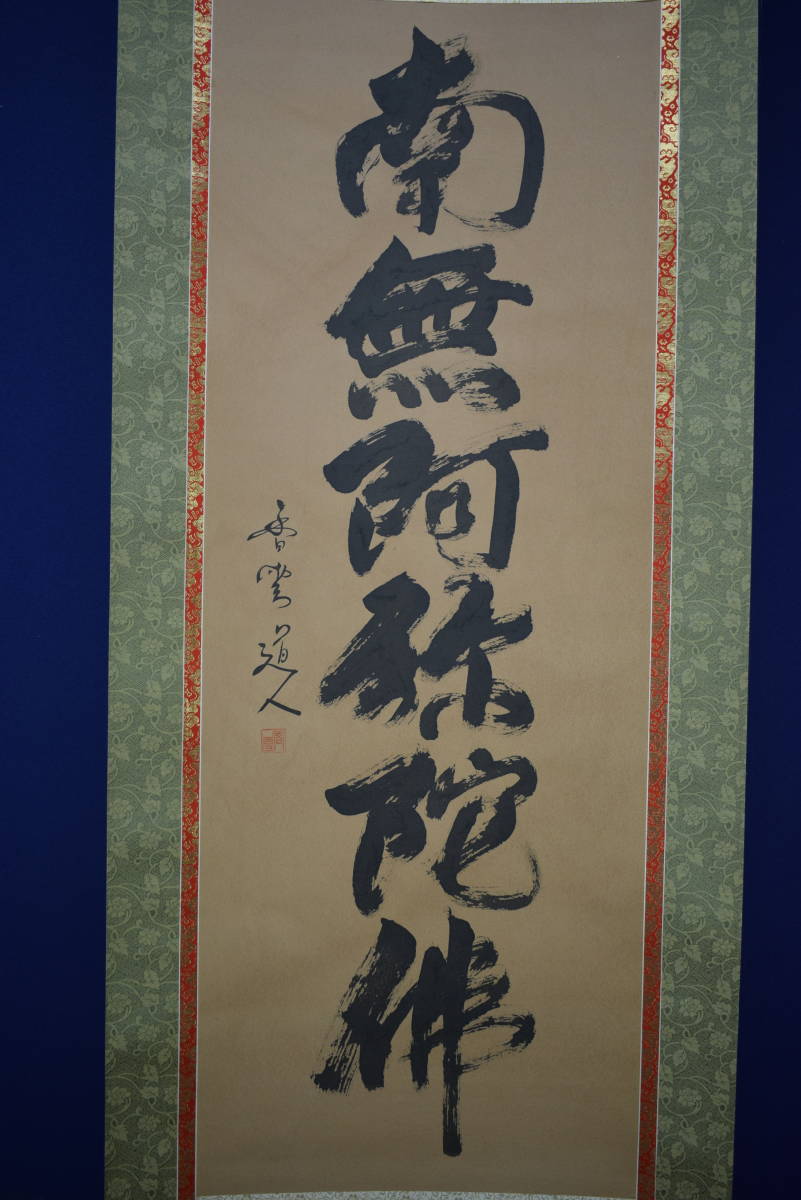 南無阿弥陀佛
道人